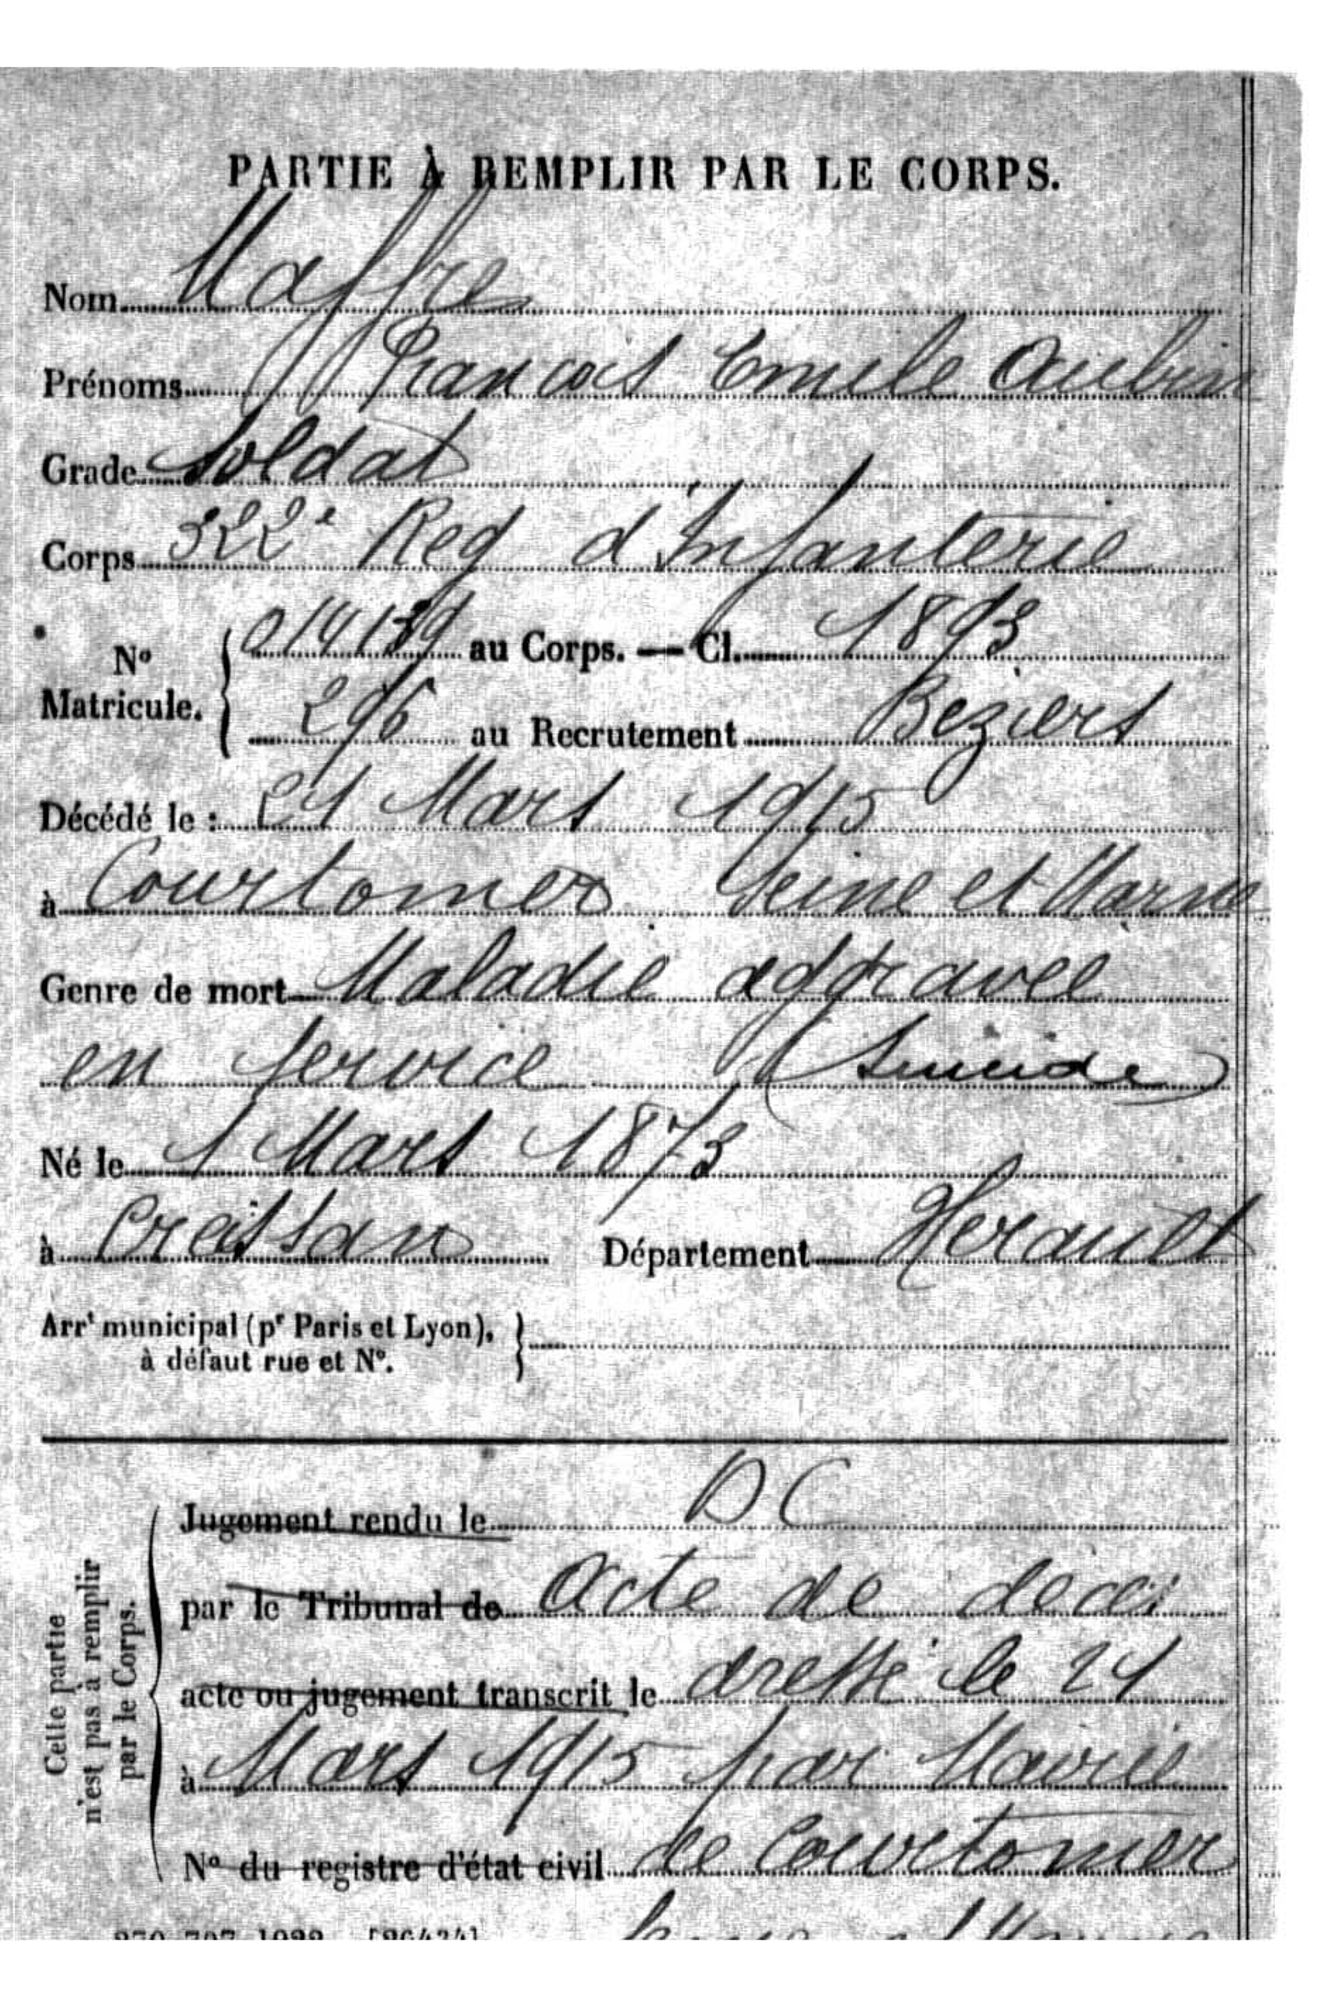 PARTIE À REMPLIR PAR LE CORPS.
Nom Maffre
Prénoms Francois Emile Aubin
Grade Soldat
Corps 322e Reg d'Infanterie
No Matricule. 014139 au Corps. — Cl. 1893
296 au Recrutement Béziers
Décédé le : 21 Mars 1915
à Courtomer Seine et Marne
Genre de mort Maladie aggravee
en service (Suicide)
Né le 1 Mars 1873
à Creissan Département Herault
Arrt municipal (pr Paris et Lyon),
à défaut rue et No.
Cette partie
n'est pas à remplir
par le Corps.
Jugement rendu le DC
par le Tribunal de Acte de deces
acte ou jugement transcrit le dressé le 21
à Mars 1915 par Mairie
No du registre d'état civil de Courtomer